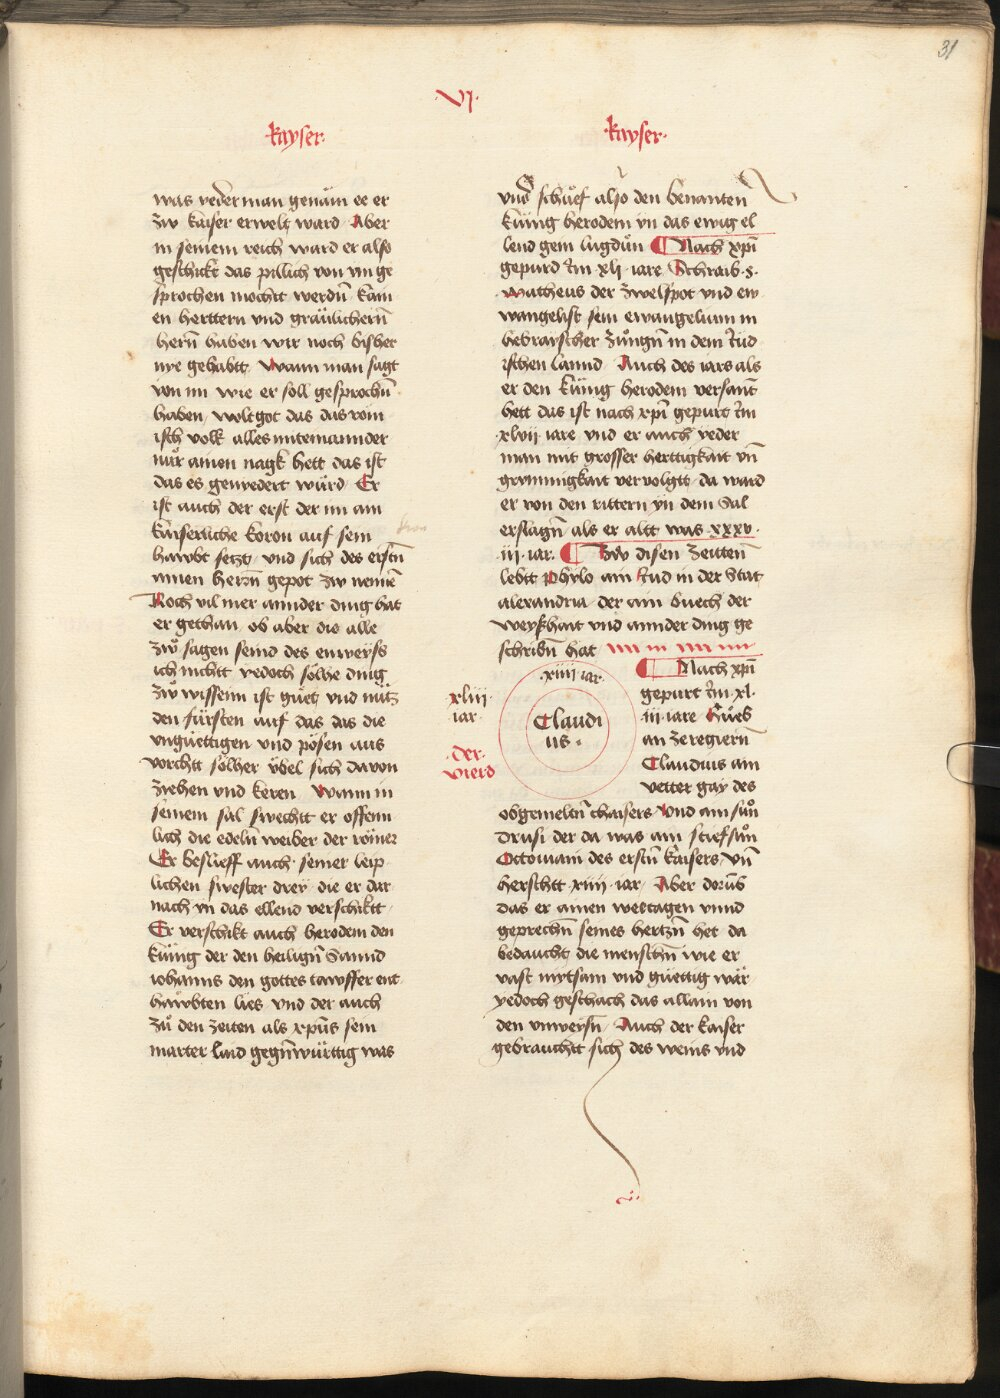 31
·VI·
·kayser·
was yederman genäm ee er
zw kaiser erwelt ward Aber
in seinem reich ward er also
geschickt das pillich von im ge
sprochen mochtt werdn̄ kain
en herttern vnd gräulichern̄
hern̄ haben wir noch bisher
nye gehabtt Wann man sagt
von im wie er soll gesprochn̄
haben woltgot das das röm
isch volk alles mitemannder
nür ainen nagk hett das ist
das es genydert würd Er
ist auch der erst der im ain
kaiserliche koron auf sein
hawbt setzt vnd sich des erstn̄
ainen herrn̄ gepot zw nennē
Noch vil mer annder ding hat
er gethan ob aber die alle
zẘ sagen seind des enweyss
ich nichtt yedoch sölhe ding
zẘ wissenn ist gůet vnd nütz
den fürsten auf das das die
vngüettigen vnd pösen aus
vorchtt sölher übel sich davon
ziehen vnd keren Wann in
seinem sal swechtt er offenn
lich die edeln̄ weiber der römer
Er beslieff auch seiner leip
lichen swester drey die er dar
nach yn das ellend verschiktt
Er verschikt auch herodem den
küing der den heilign̄ Sannd
iohanns den gottes tawffer ent
hawbten lies vnd der auch
zů den zeiten als xpūs sein
marter laid gegn̄württig was
·kayser·
vnd schůef also den benanten
küing herodem yn das ewig el
lend gem lugdůn ¶ Nach xpī
gepurd im xli iare Schraib s.
matheus der zwelfpot vnd ew
wangelist sein ewangelium in
hebrayscher zůngn̄ in dem iud
ischen lannd Auch des iars als
er den küing herodem versannt
hett das ist nach xpī gepurt im
xlvii iare vnd er auch yeder
man mit grosser herttigkait vn̄
grymmigkait vervolgtt da ward
er von den rittern yn dem Sal
erslagn̄ als er altt was xxxv·
iii·iar. ¶ Zw disen zeitten
lebtt phylo ain Iud in der Stat
alexandria der ain buech der
weyßhait vnd annder ding ge
schribn̄ hat
·xiiii iar·
Claudi
us·
xliii
iar·
·der·
vierd
¶ Nach xpī
gepurt im xl·
iii iare Hůeb
an zeregiern̄
Claudius ain
vetter gay des
obgemeltn̄ chaisers vnd ain sůn
Drusi der da was ain stiefsůn
Octoviani des erstn̄ kaisers vn̄
herschtt xiiii iar Aber dorůb
das er ainen wetagen vnnd
geprechn̄ seines hertzn̄ het da
bedaucht die menschn̄ wie er
vast nyttsam vnd güettig wär
yedoch geschach das allain von
den vnweysn̄ Auch der kaiser
gebrauchtt sich des weins vnd